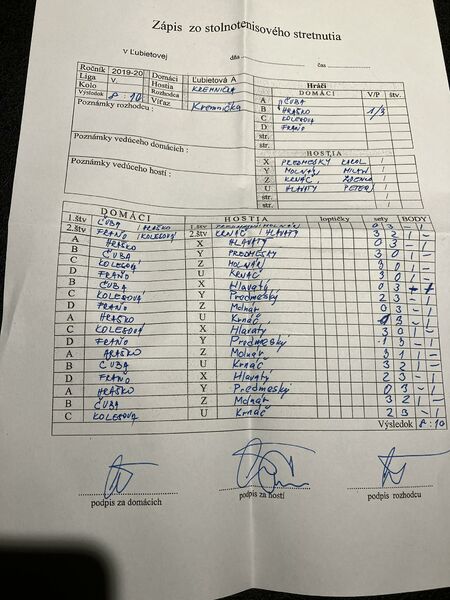 Zápis zo stolnotenisového stretnutia
v Ľubietovej dňa čas
Ročník 2019-20 Domáci Ľubietová A
Liga V. Hostia KREMNIČKA
Kolo Rozhodca
Výsledok 8:10 Víťaz Kremnička
Poznámky rozhodcu:
Poznámky vedúceho domácich:
Poznámky vedúceho hostí:
Hráči
DOMÁCI V/P štv.
A ČUBA
B HRAŠKO 1/3
C KOLEGOVÁ
D FRAŇO
str.
str.
HOSTIA
X PREDMESKY KAROL /
Y MOLNÁR MILAN /
Z KRNÁČ ZDENKO /
U HLAVATY PETER /
str. /
str. /
DOMÁCI HOSTIA loptičky sety BODY
1.štv ČUBA / HRAŠKO 1.štv 0 3 - 1
2.štv FRAŇO / KOLEGOVÁ 2.štv KRNÁČ / HLAVATY 3 2 1 -
A HRAŠKO X HLAVATY
B ČUBA Y PREDMESKY
C KOLEGOVÁ Z MOLNÁR
D FRAŇO U KRNÁČ
B ČUBA X Hlavatý
C KOLEGOVÁ Y Predmesky
D FRAŇO Z Molnár
A HRAŠKO U Krnáč
C KOLEGOVÁ X Hlavaty
D FRAŇO Y Predmesky
A HRAŠKO Z Molnár 3 1 1 -
B ČUBA U Krnáč 3 2 1 -
D FRAŇO X Hlavatý 2 3 - 1
A HRAŠKO Y Predmeský 0 3 - 1
B ČUBA Z Molnár 3 2 1 -
C KOLEGOVÁ U Krnáč 2 3 - 1
Výsledok 8:10
podpis za domácich podpis za hostí podpis rozhodcu